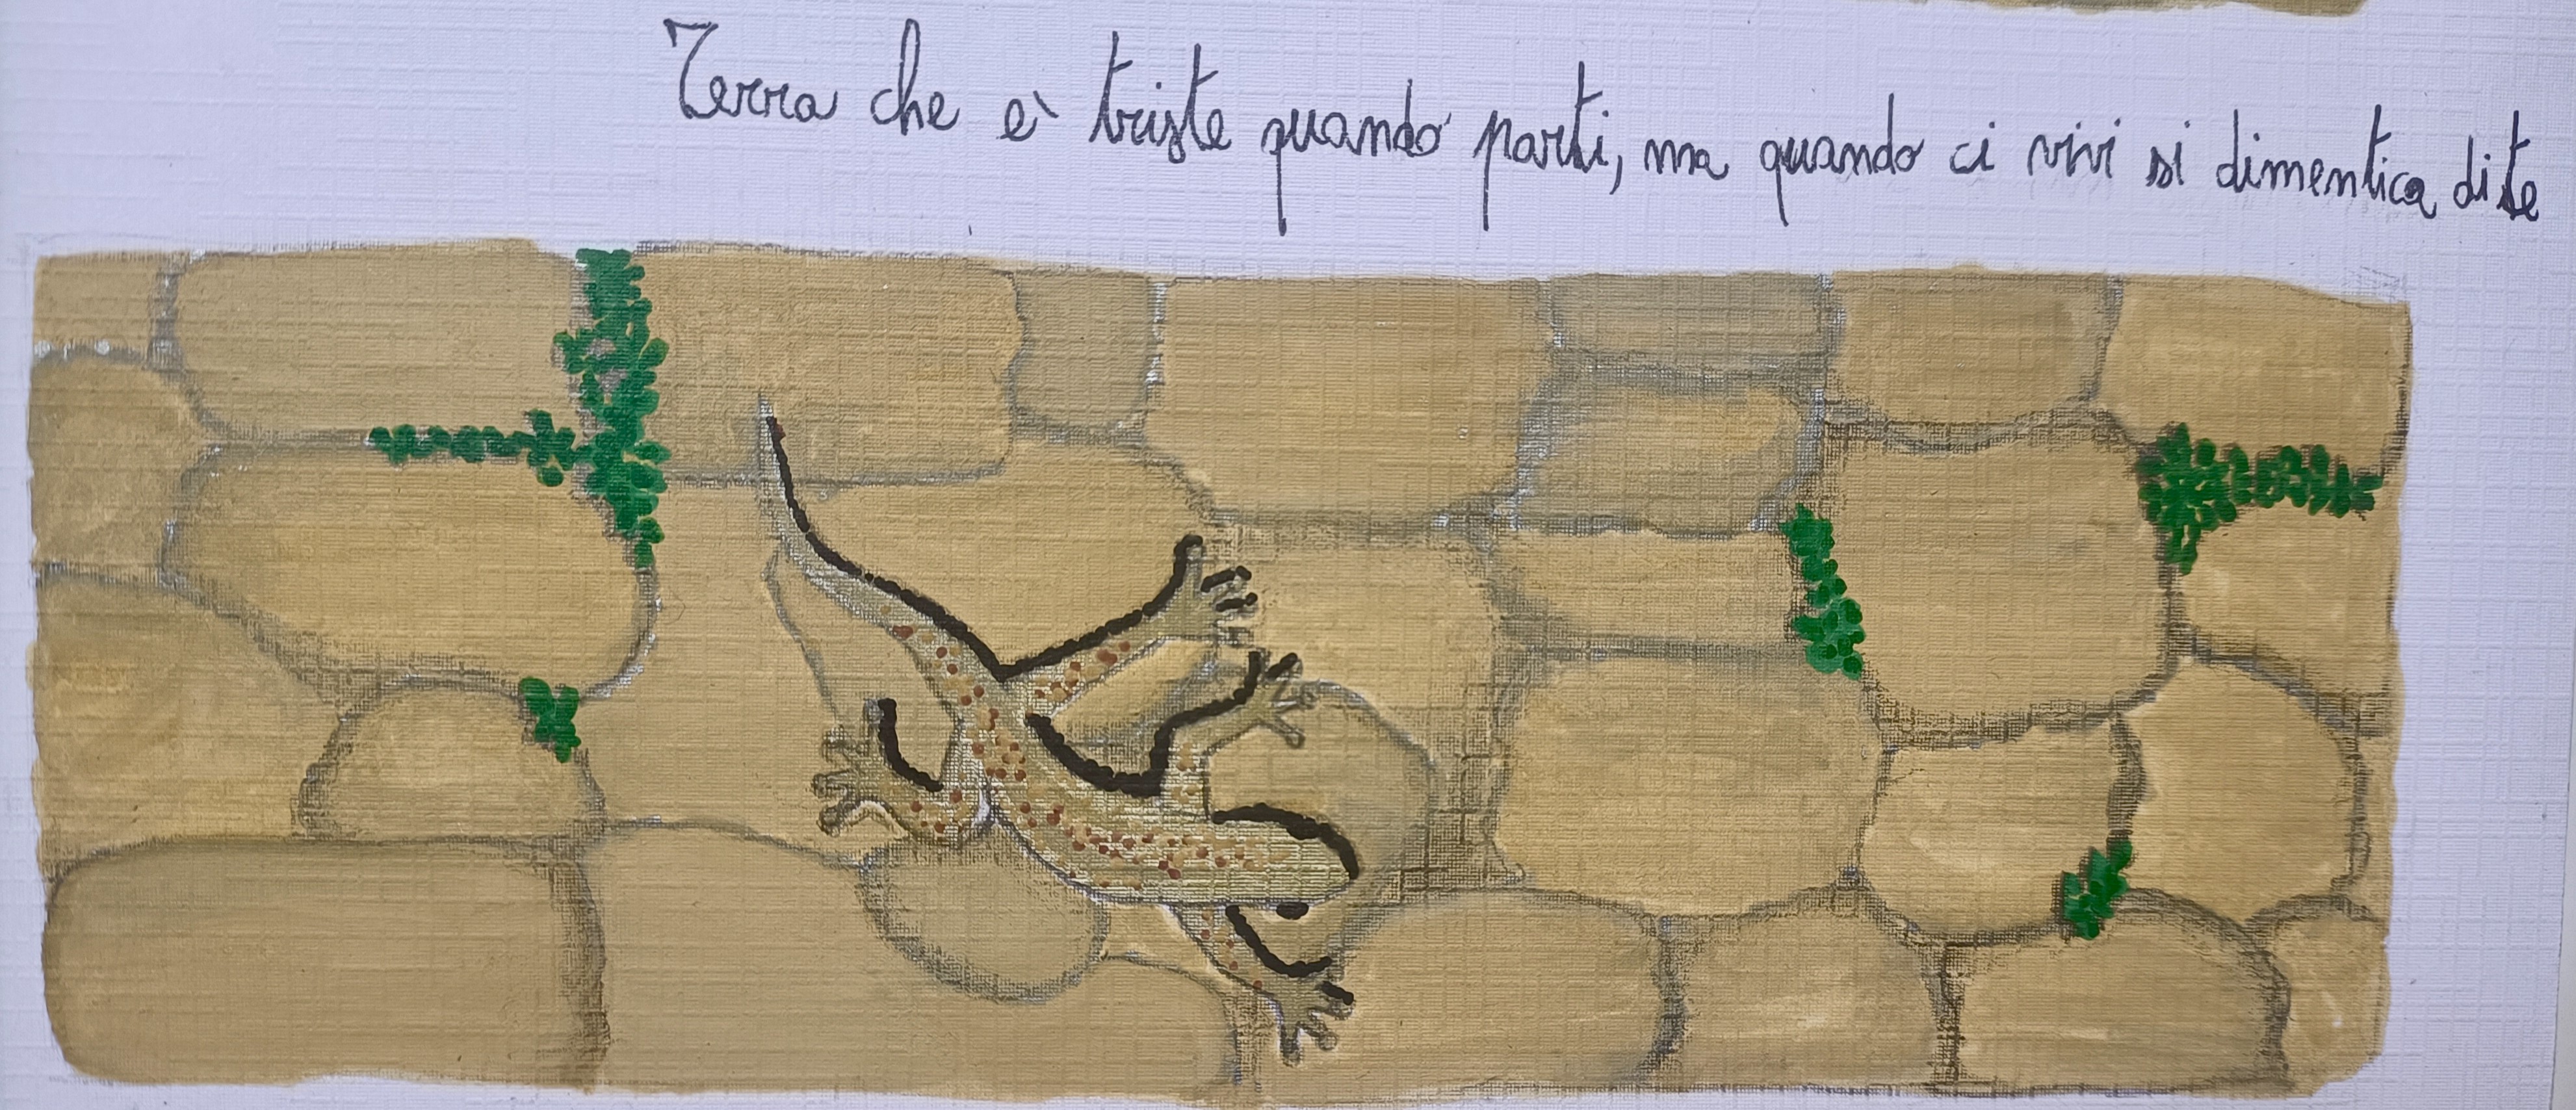 Terra che è triste quando parti, ma quando ci vivi si dimentica di te